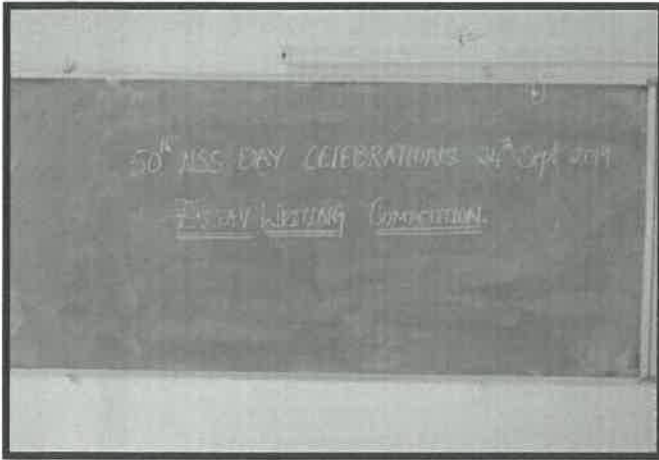 50th NSS DAY CELEBRATIONS 24th Sept 2019
ESSAY WRITING COMPETITION.